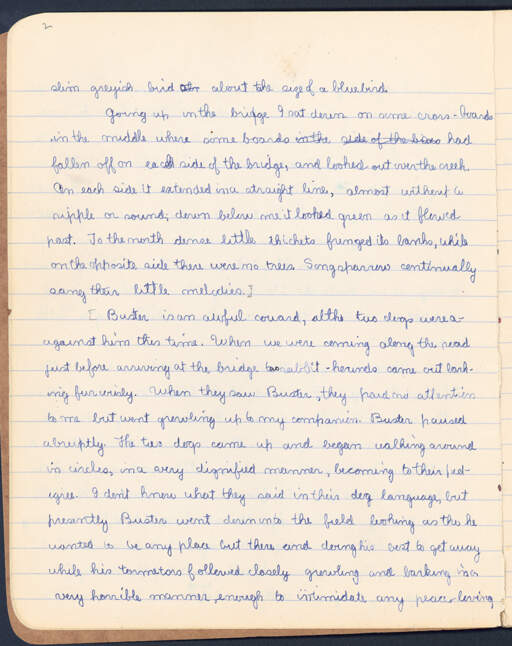 2
slim greyish bird about the size of a bluebird.
Going up in the bridge I sat down on some cross-boards
in the middle where some boards in the side of the had
fallen off on each side of the bridge, and looked out over the creek.
On each side it extended in a straight line, almost without a
ripple or sound; down below me it looked green as it flowed
past. To the north dense little thickets frenged its banks, while
on the opposite side there were no trees. Song sparrow continually
sang their little melodies.]
[ Buster is an awful coward, altho two dogs were a-
against him this time. When we were coming along the road
just before arriving at the bridge two rabbit-hounds came out bark-
ing furiously. When they saw Buster, they paid no attention
to me but went growling up to my companion. Buster paused
abruptly. The two dogs came up and began walking around
in circles, in a very dignified manner, becoming to their ped-
igree. I don't know what they said in their dog language, but
presently Buster went down into the field looking as tho he
wanted to be any place but there and doing his best to get away
while his tormetors followed closely growling and barking in a
very horrible manner, enough to intimidate any peace-loving